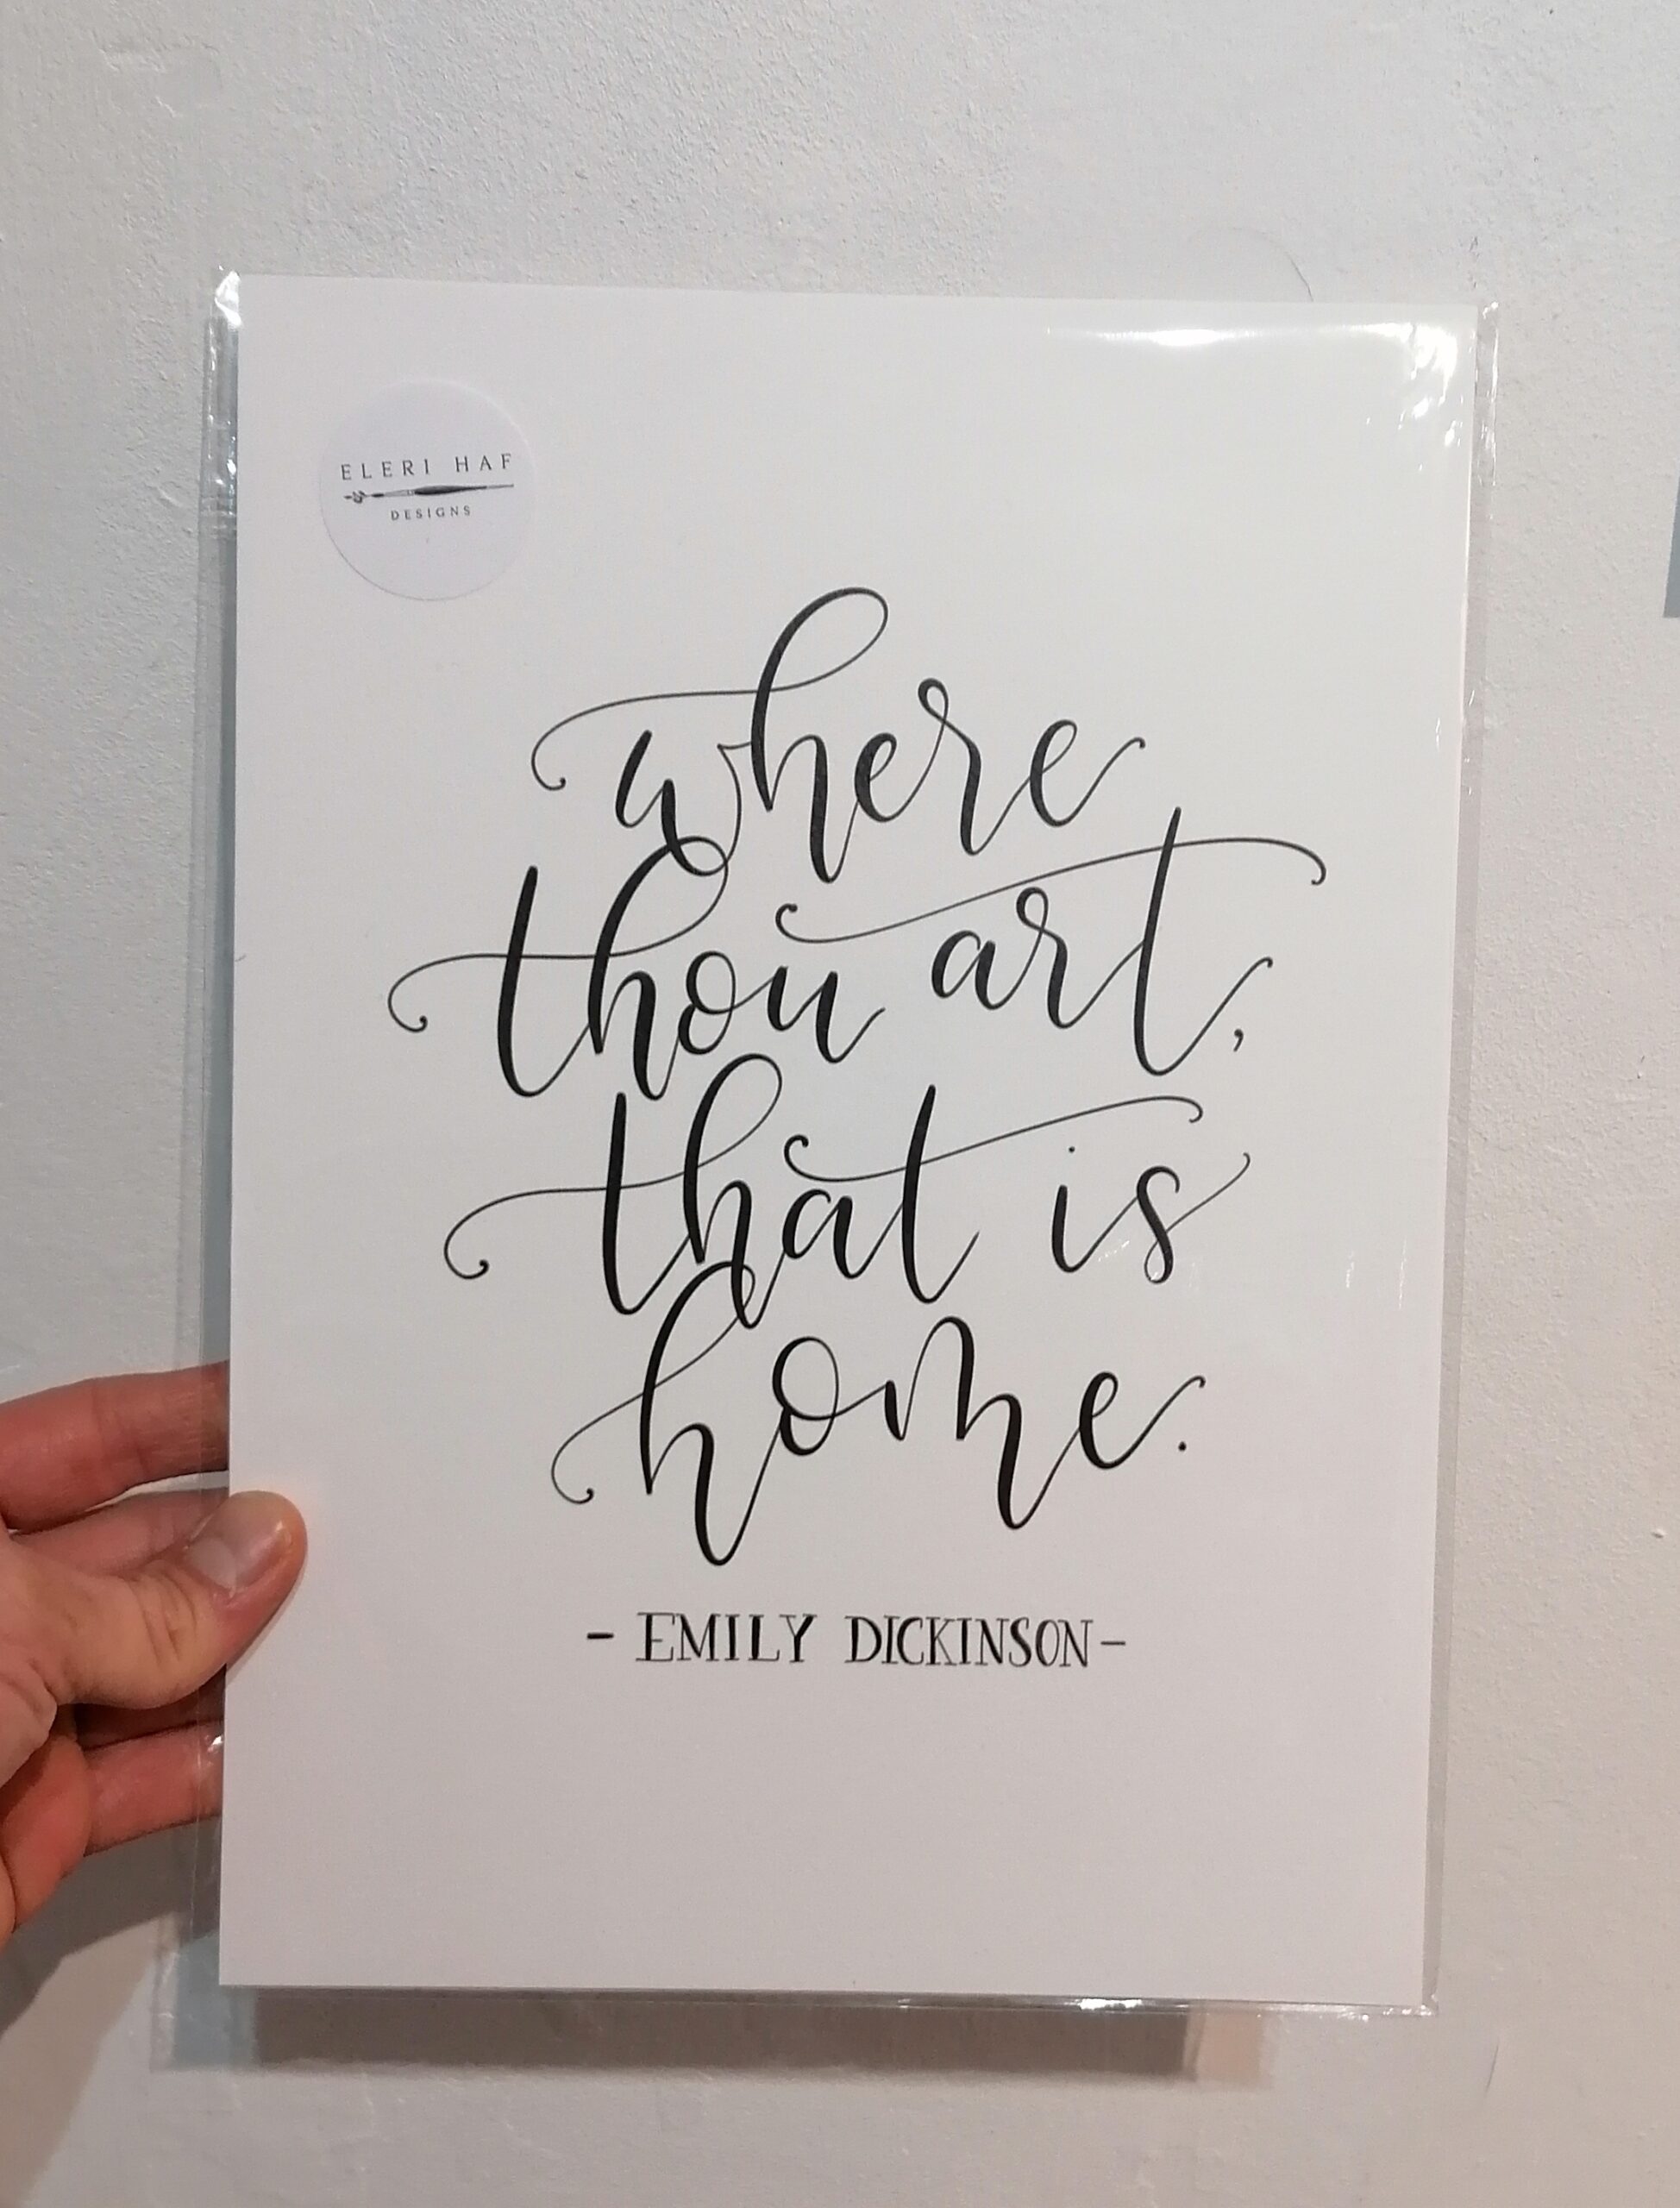 ELERI HAF
DESIGNS
where
thou art,
that is
home.
- EMILY DICKINSON -